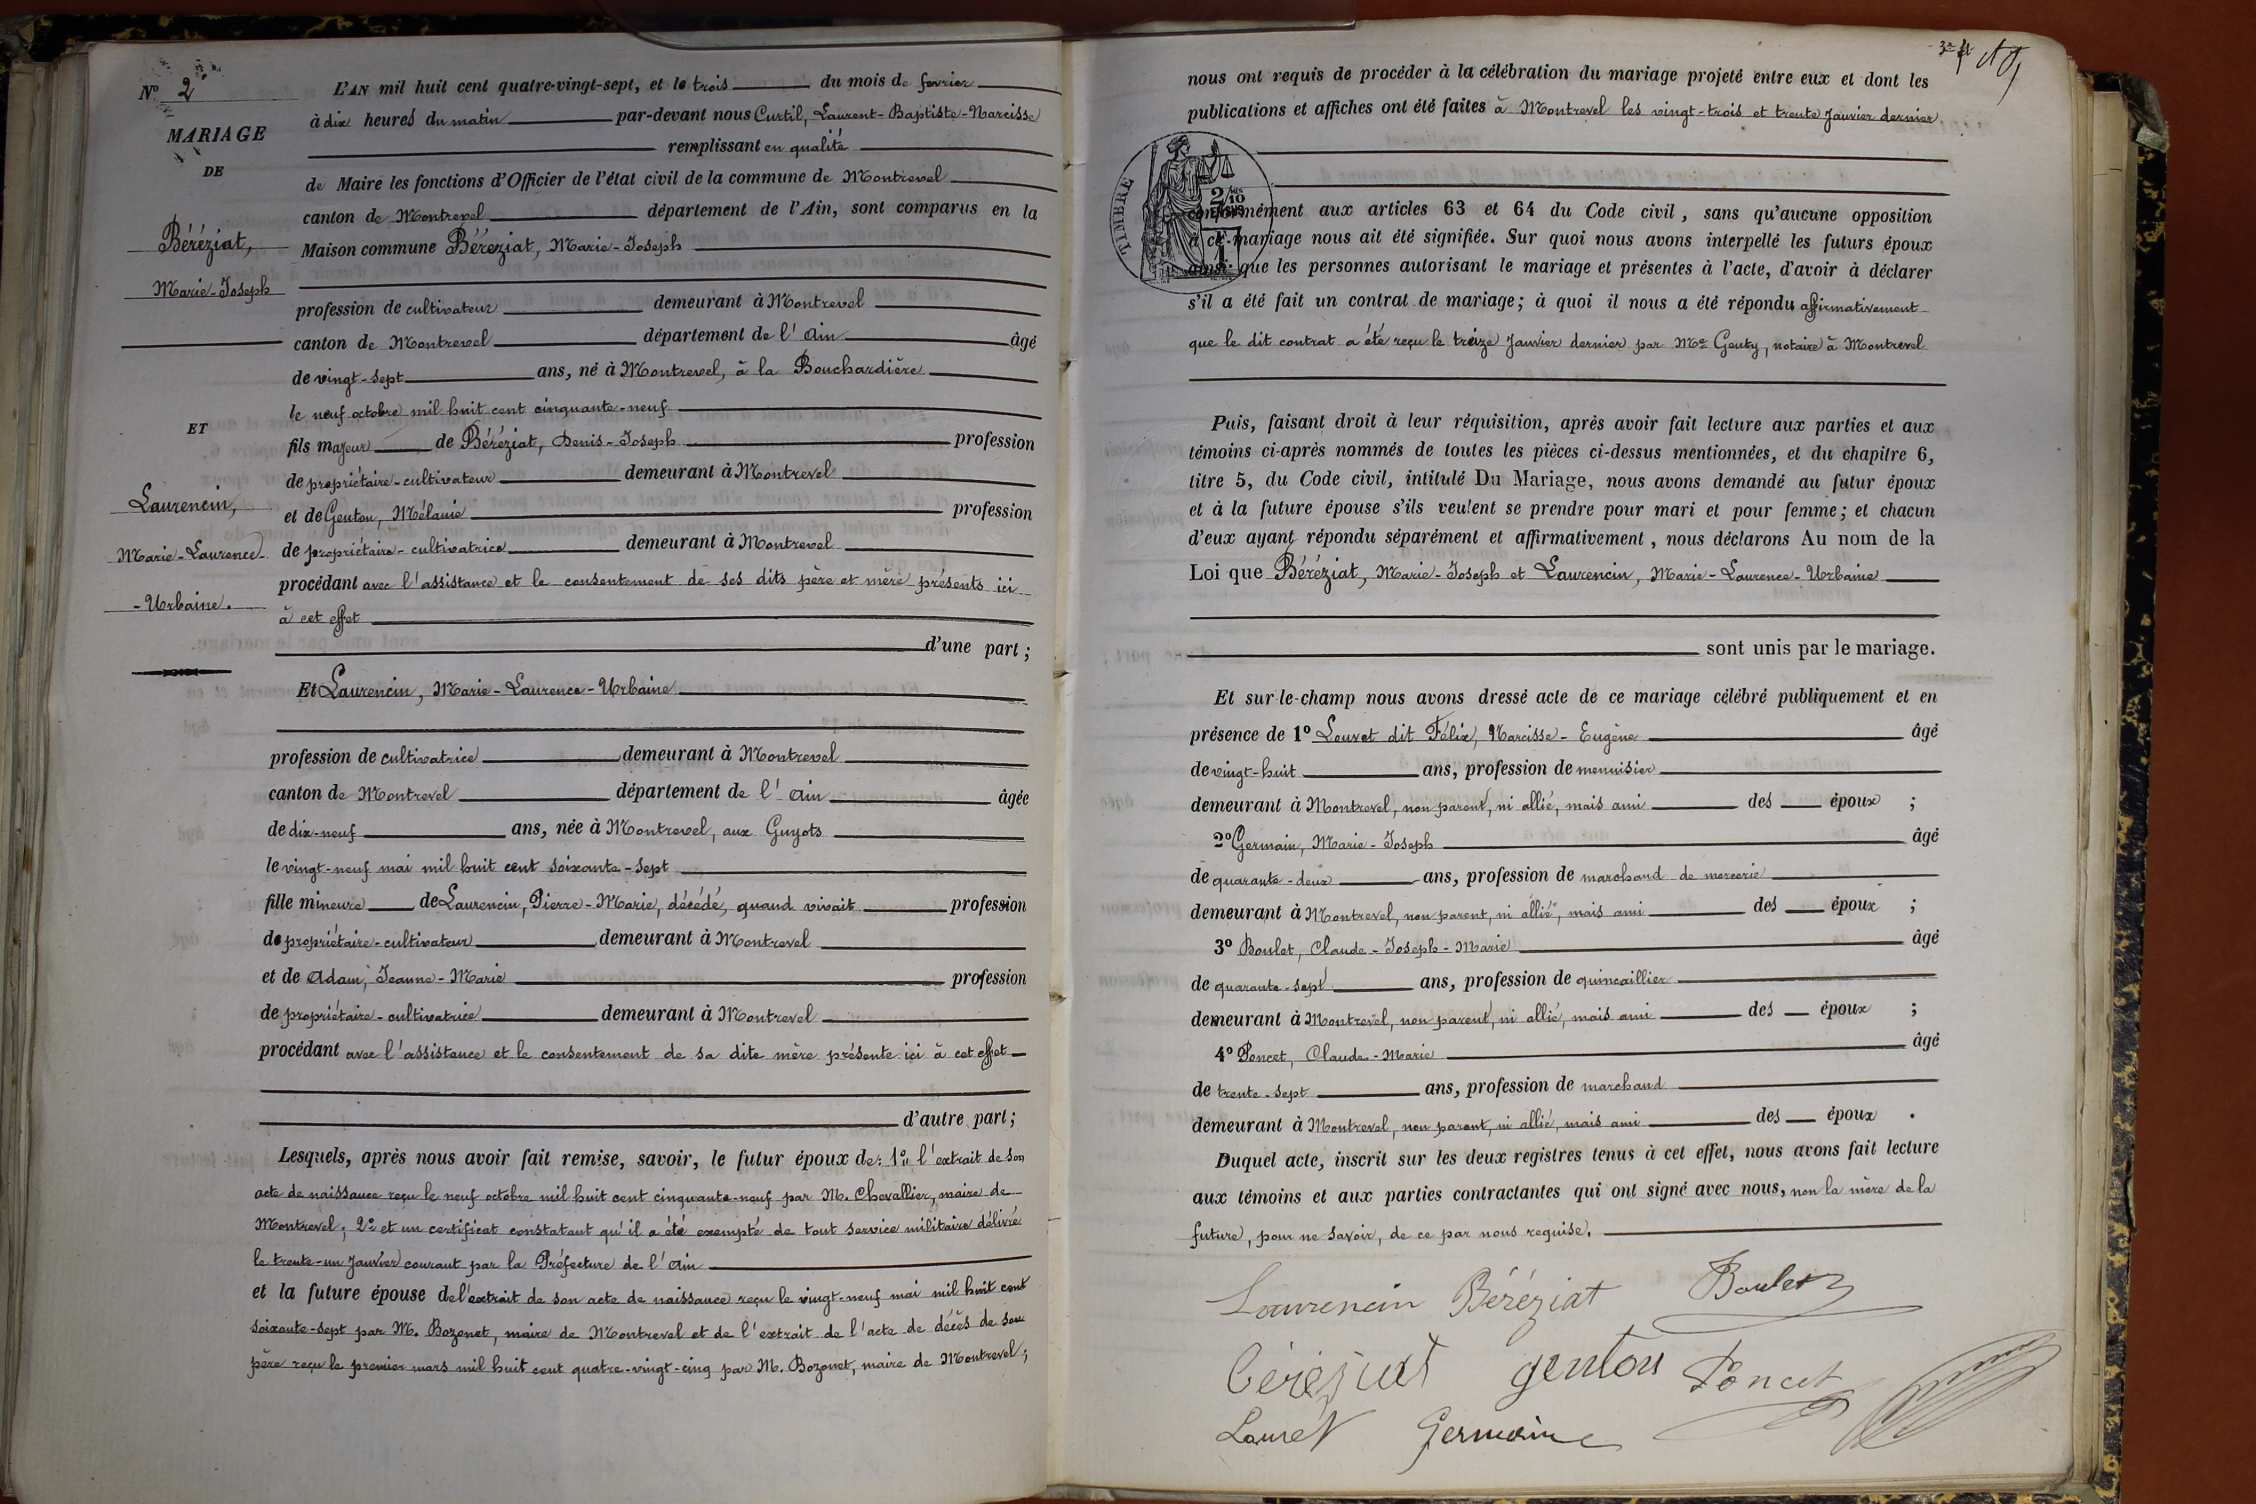 N° 2
MARIAGE
DE
Béréziat,
Marie-Joseph
ET
Laurencin,
Marie-Laurence-
-Urbaine.
L'AN mil huit cent quatre-vingt-sept, et le trois du mois de fevrier
à dix heures du matin par-devant nous Curtil, Laurent-Baptiste-Narcisse
remplissant en qualité
de Maire les fonctions d'Officier de l'état civil de la commune de Montrevel
canton de Montrevel département de l'Ain, sont comparus en la
Maison commune Béréziat, Marie-Joseph
profession de cultivateur demeurant à Montrevel
canton de Montrevel département de l'Ain âgé
de vingt-sept ans, né à Montrevel, à la Bouchardière
le neuf octobre mil huit cent cinquante-neuf
fils majeur de Béréziat, Denis-Joseph profession
de propriétaire-cultivateur demeurant à Montrevel
et de Genton, Mélanie profession
de propriétaire-cultivatrice demeurant à Montrevel
procédant avec l'assistance et le consentement de ses dits père et mère présents ici
à cet effet
d'une part ;
Et Laurencin, Marie-Laurence-Urbaine
profession de cultivatrice demeurant à Montrevel
canton de Montrevel département de l'Ain âgée
de dix-neuf ans, née à Montrevel, aux Guyots
le vingt-neuf mai mil huit cent soixante-sept
fille mineure de Laurencin, Pierre-Marie, décédé, quand vivait profession
de propriétaire-cultivateur demeurant à Montrevel
et de Adam, Jeanne-Marie profession
de propriétaire-cultivatrice demeurant à Montrevel
procédant avec l'assistance et le consentement de sa dite mère présente ici à cet effet
d'autre part ;
Lesquels, après nous avoir fait remise, savoir, le futur époux de: 1° l'extrait de son
acte de naissance reçu le neuf octobre mil huit cent cinquante-neuf par M. Chevallier, maire de
Montrevel; 2° et un certificat constatant qu'il a été exempté de tout service militaire délivré
le trente-un Janvier courant par la Préfecture de l'Ain
et la future épouse de l'extrait de son acte de naissance reçu le vingt-neuf mai mil huit cent
soixante-sept par M. Bozonet, maire de Montrevel et de l'extrait de l'acte de décès de son
père reçu le premier mars mil huit cent quatre-vingt-cinq par M. Bozonet, maire de Montrevel;
nous ont requis de procéder à la célébration du mariage projeté entre eux et dont les
publications et affiches ont été faites à Montrevel les vingt-trois et trente Janvier dernier
TIMBRE
conformément aux articles 63 et 64 du Code civil, sans qu'aucune opposition
à ce mariage nous ait été signifiée. Sur quoi nous avons interpellé les futurs époux
ainsi que les personnes autorisant le mariage et présentes à l'acte, d'avoir à déclarer
s'il a été fait un contrat de mariage ; à quoi il nous a été répondu affirmativement
que le dit contrat a été reçu le treize Janvier dernier par Me Genty, notaire à Montrevel
Puis, faisant droit à leur réquisition, après avoir fait lecture aux parties et aux
témoins ci-après nommés de toutes les pièces ci-dessus mentionnées, et du chapitre 6,
titre 5, du Code civil, intitulé Du Mariage, nous avons demandé au futur époux
et à la future épouse s'ils veulent se prendre pour mari et pour femme ; et chacun
d'eux ayant répondu séparément et affirmativement, nous déclarons Au nom de la
Loi que Béréziat, Marie-Joseph et Laurencin, Marie-Laurence-Urbaine
sont unis par le mariage.
Et sur-le-champ nous avons dressé acte de ce mariage célébré publiquement et en
présence de 1° Louvet dit Félix, Narcisse-Eugène âgé
de vingt-huit ans, profession de menuisier
demeurant à Montrevel, non parent, ni allié, mais ami des époux ;
2° Germain, Marie-Joseph âgé
de quarante-deux ans, profession de marchand de mercerie
demeurant à Montrevel, non parent, ni allié, mais ami des époux ;
3° Boulet, Claude-Joseph-Marie âgé
de quarante-sept ans, profession de quincaillier
demeurant à Montrevel, non parent, ni allié, mais ami des époux ;
4° Poncet, Claude-Marie âgé
de trente-sept ans, profession de marchand
demeurant à Montrevel, non parent, ni allié, mais ami des époux .
Duquel acte, inscrit sur les deux registres tenus à cet effet, nous avons fait lecture
aux témoins et aux parties contractantes qui ont signé avec nous, non la mère de la
future, pour ne savoir, de ce par nous requise.
Laurencin Béréziat Boulet
Béréziat genton Poncet
Louvet Germain